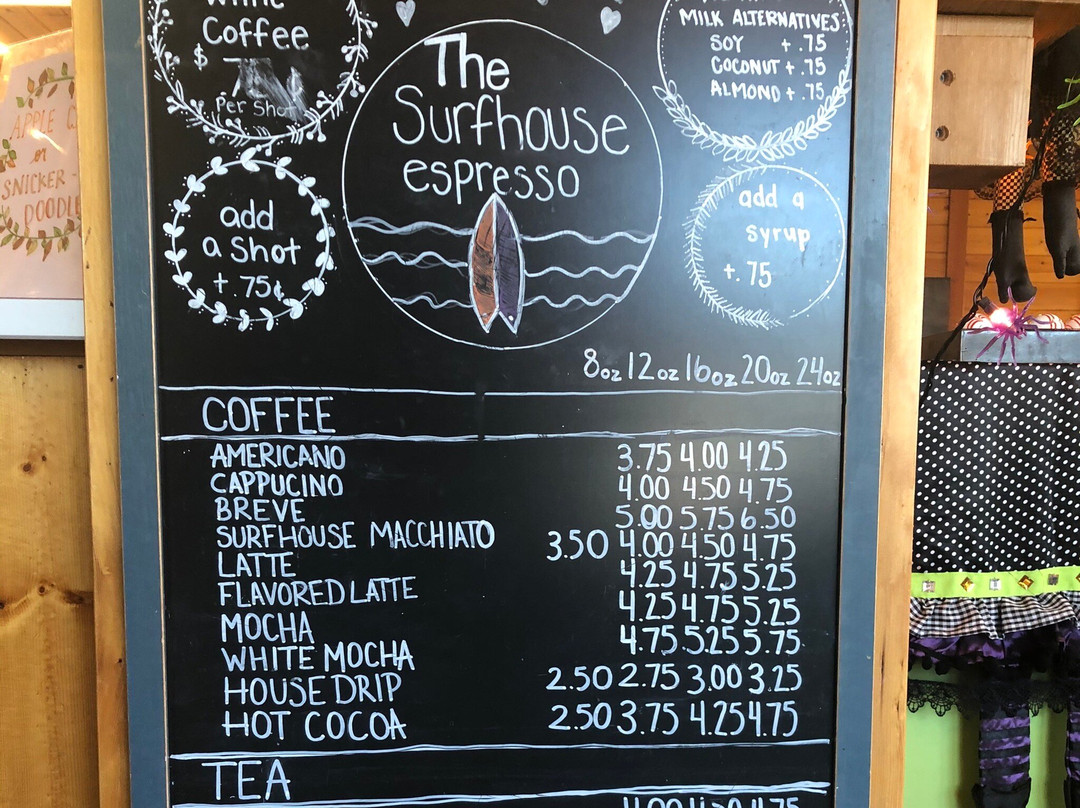 Coffee
$
Per Shot
The
Surfhouse
espresso
MILK ALTERNATIVES
SOY + .75
COCONUT + .75
ALMOND + .75
add
a shot
+ .75¢
add a
syrup
+.75
APPLE
or
SNICKER-
DOODLE
8oz 12oz 16oz 20oz 24oz
COFFEE
AMERICANO 3.75 4.00 4.25
CAPPUCINO 4.00 4.50 4.75
BREVE 5.00 5.75 6.50
SURFHOUSE MACCHIATO
LATTE 3.50 4.00 4.50 4.75
FLAVORED LATTE 4.25 4.75 5.25
MOCHA 4.25 4.75 5.25
WHITE MOCHA 4.75 5.25 5.75
HOUSE DRIP 2.50 2.75 3.00 3.25
HOT COCOA 2.50 3.75 4.25 4.75
TEA